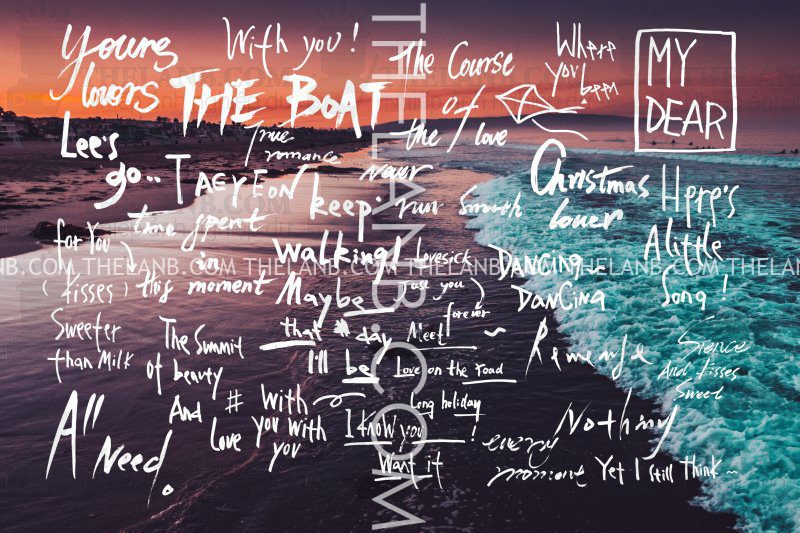 Young lovers
With you!
THE BOAT
The Course
of
the / love
Where
you been
MY
DEAR
Lee's
go..
True
romance
TAEYEON
never
keep run Smooth
Christmas
lover
Here's
A little
Song!
time spent
in
this moment
for you
(kisses)
Walking!
Lovesick
Maybe
Just you
forever
Dancing
Dancing
Sweeter
than Milk
The Summit
of beauty
that # day
Meet
I'll be
Love on the road
Long holiday
And kisses
Sweet
All
Need.
And # With
Love you with
you
I know you !
Want it
Nothing
every
moment Yet I still think~
THELANB.COM
THELANB.COM THELANB.COM THELANB.COM THELANB.COM